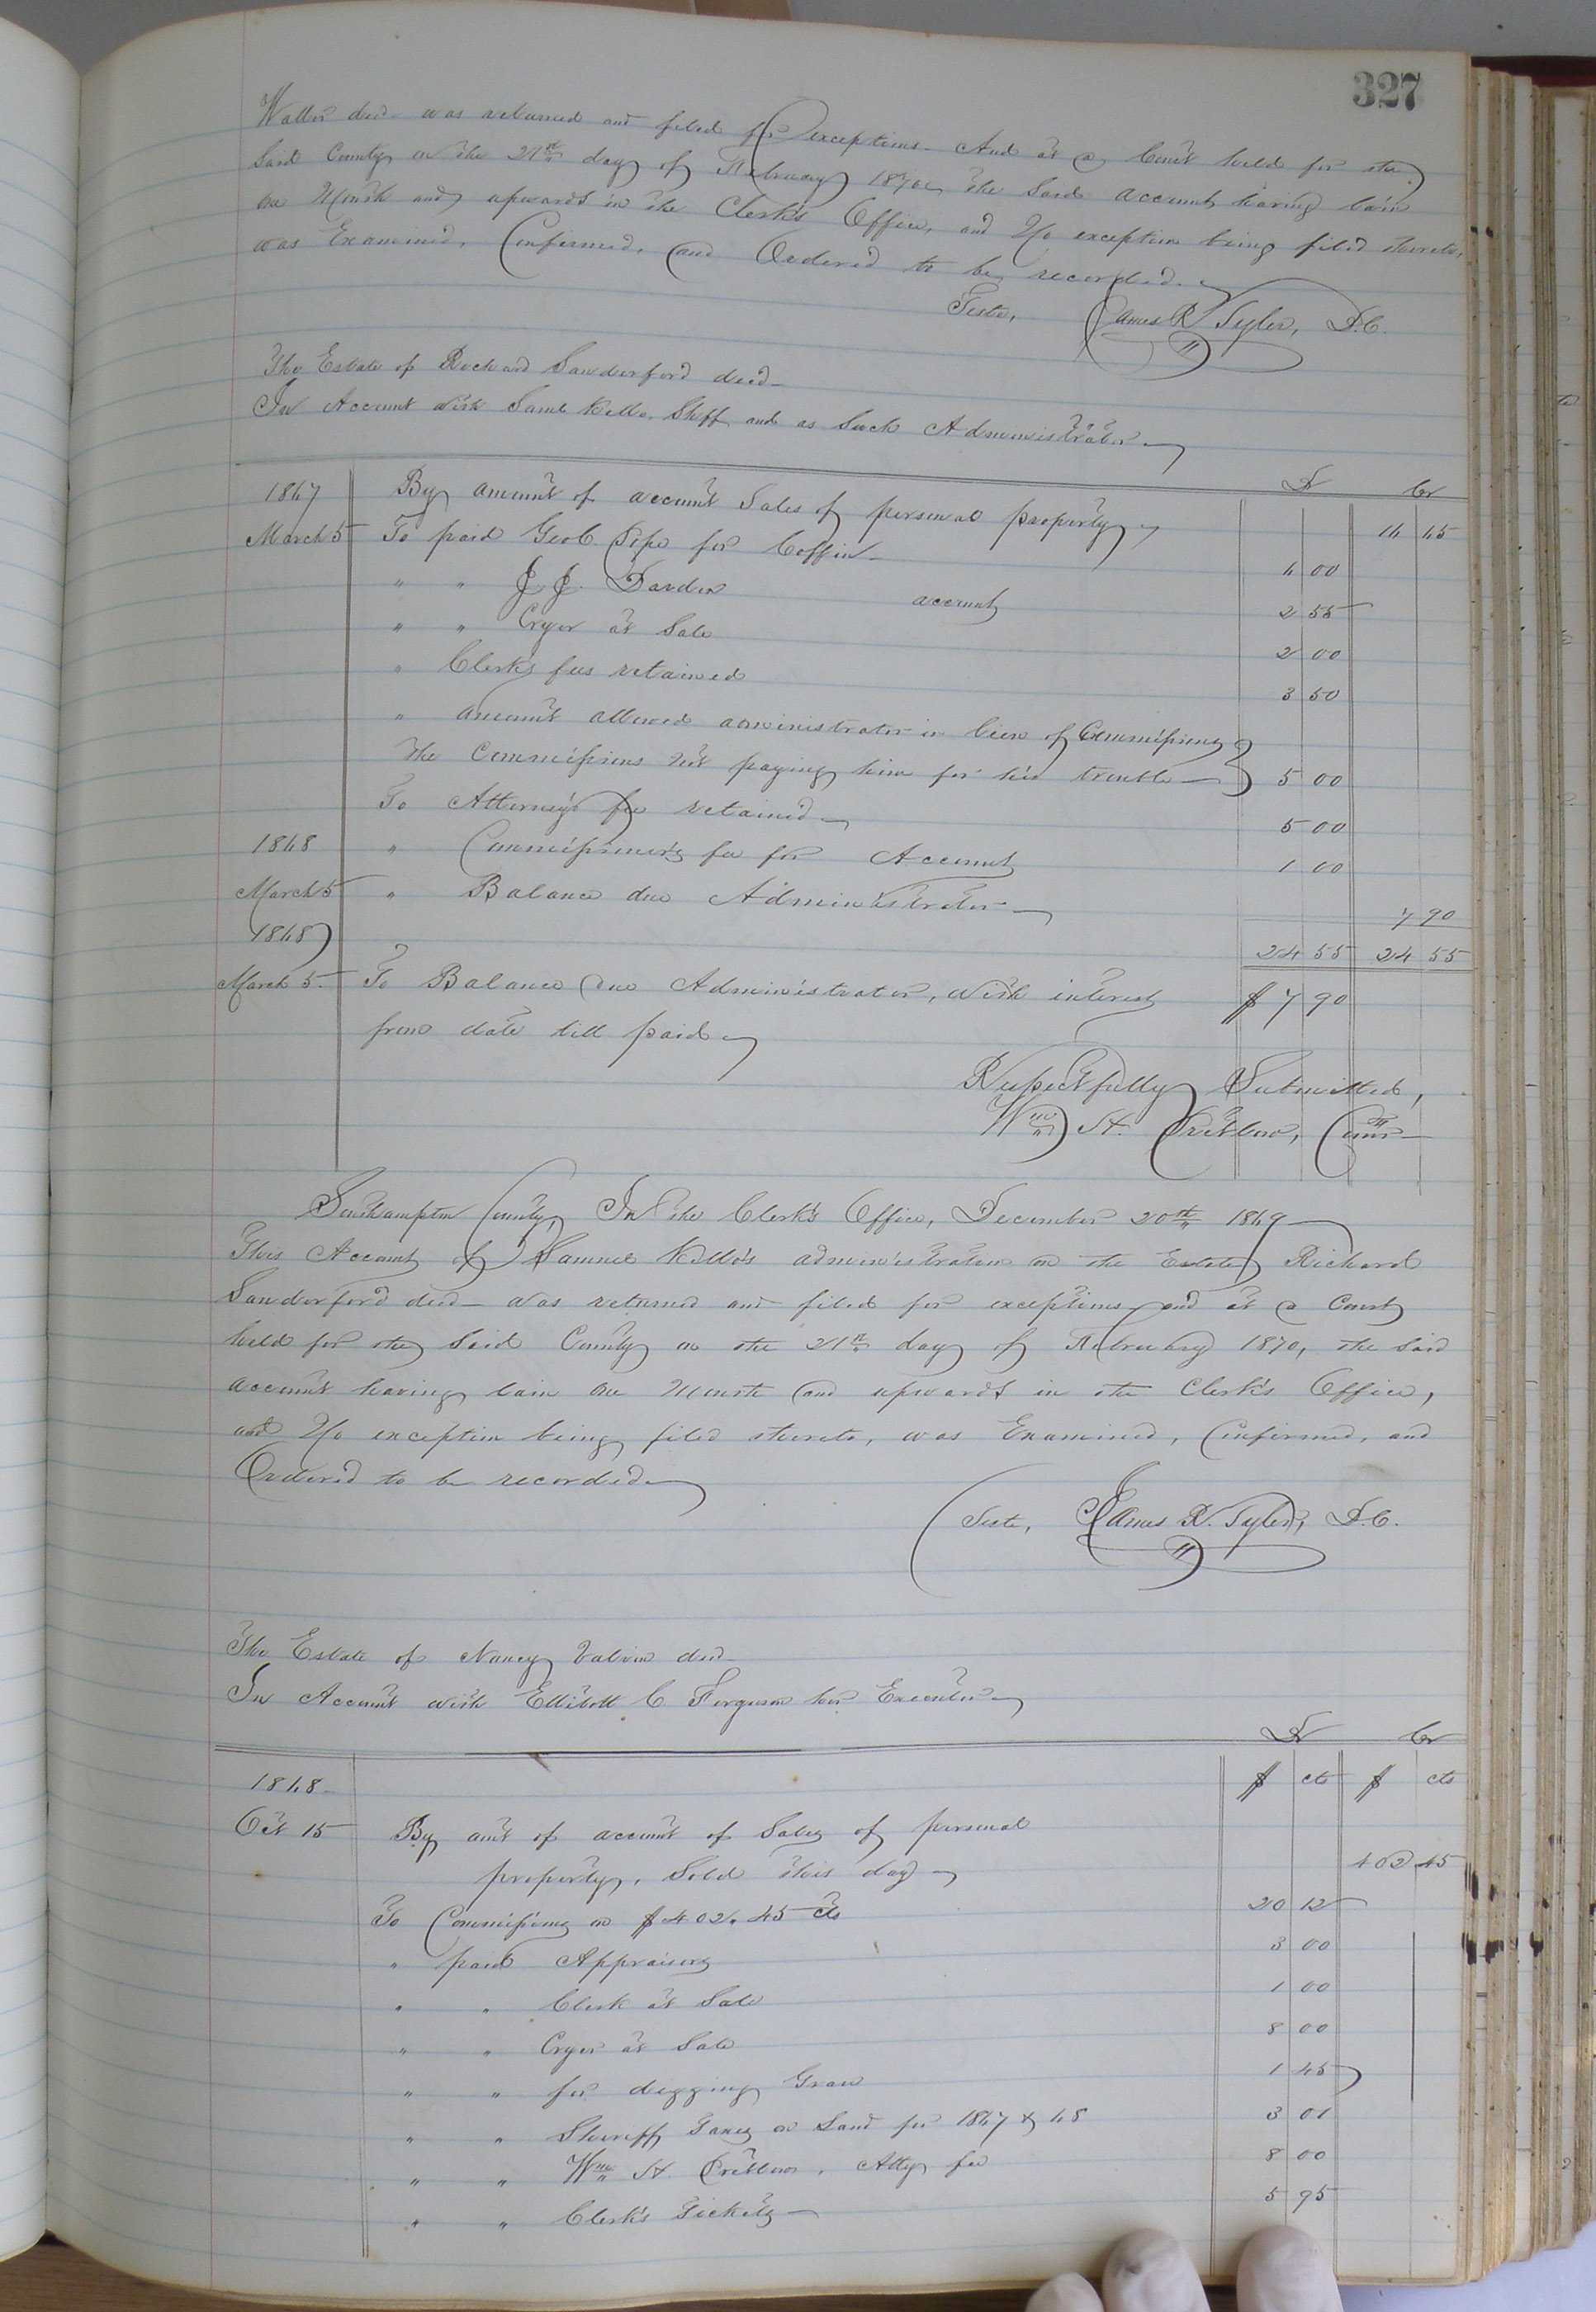 327
Waller decd was returned and filed for exceptions. And at a Court held for the
said County on the 21st day of February 1870, the said account having lain
one Month and upwards in the Clerk's Office, and No exception being filed thereto,
was Examined, Confirmed, and Ordered to be recorded.
Teste, James R Tyler, D.C.
The Estate of Richard Sanderford decd
In Account with Saml Kello, Shff and as Such Administrator
Dr Cr
1867 By amount of account Sales of personal property 16 65
March 5 To paid Geo C. Pope for Coffin 6 00
" " J. J. Darden account 2 55
" " Cryer at Sale 2 00
" Clerk's fees retained 3 50
" amount allowed administrator in lieu of Commissions
the Commissions not paying him for his trouble 5 00
To Attorney's fee retained 5 00
1868 " Commissioner's fee for Account 1 00
March 5 " Balance due Administrator 7 90
1868 24 55 24 55
March 5 To Balance due Administrator, with interest $ 7 90
from date till paid
Respectfully Submitted,
Wm H. Comr
Southampton County, In the Clerk's Office, December 20th 1869
This Account of Samuel Kello's administration on the Estate Richard
Sanderford decd was returned and filed for exceptions and at a Court
held for the said County on the 21st day of February 1870, the said
account having lain one Month and upwards in the Clerk's Office,
and No exception being filed thereto, was Examined, Confirmed, and
Ordered to be recorded
Teste, James R. Tyler, D.C.
The Estate of Nancy decd
In Account with C Ferguson her Executor
Dr Cr
1868 $ cts $ cts
Oct 15 By amt of account of Sales of personal
property, Sold this day 402 45
To Commissions on $402.45 cts 20 12
" paid Appraisers 3 00
" " Clerk at Sale 1 00
" " Cryer at Sale 8 00
" " for digging Grave 1 45
" " Sheriff Taxes on Land for 1867 & 68 3 01
" " Wm H. Atty fee 8 00
" " Clerk's Tickets 5 95